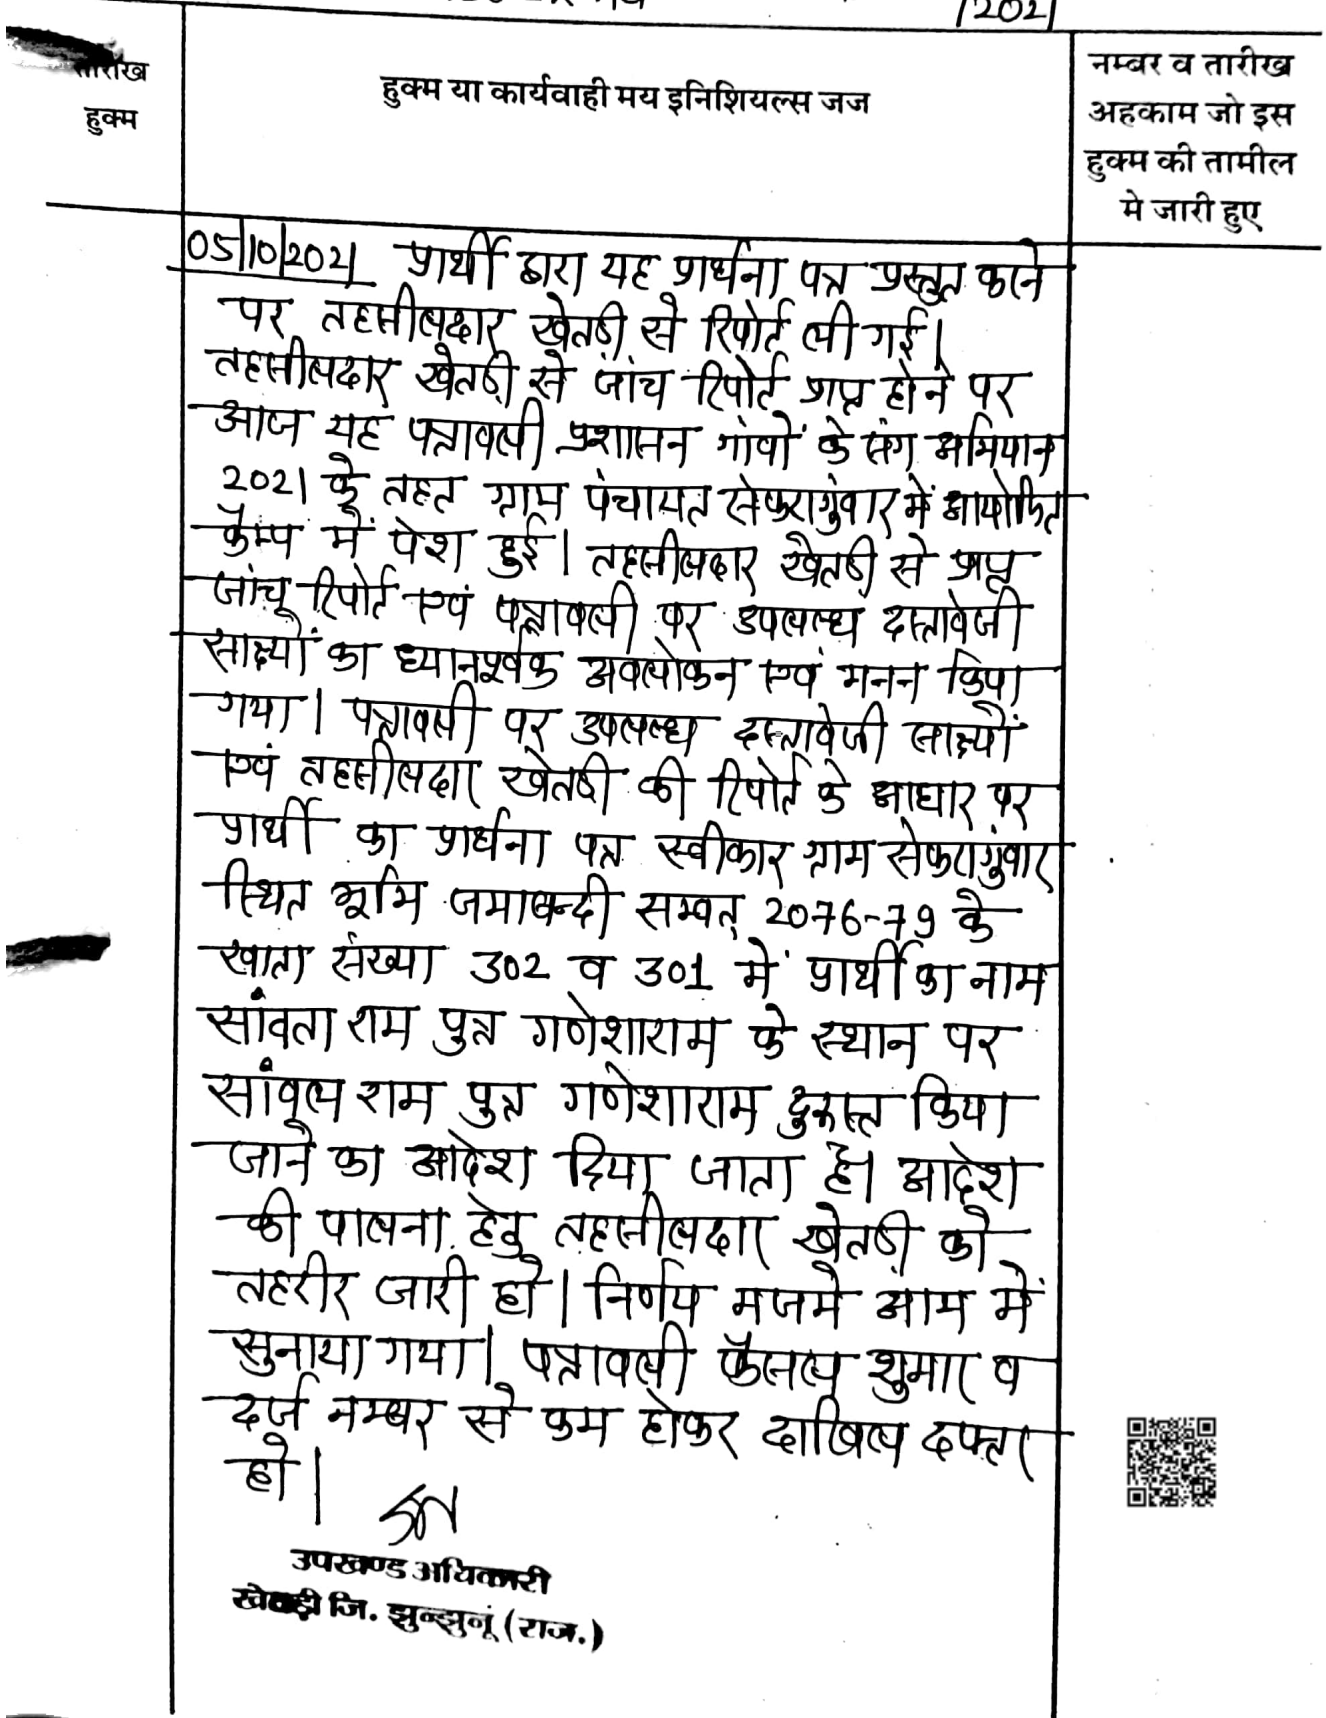 /202
तारीख
हुक्म
हुक्म या कार्यवाही मय इनिशियल्स जज
नम्बर व तारीख
अहकाम जो इस
हुक्म की तामील
मे जारी हुए
05/10/2021 प्रार्थी द्वारा यह प्रार्थना पत्र प्रस्तुत करने
पर तहसीलदार खेतडी से रिपोर्ट ली गई।
तहसीलदार खेतडी से जांच रिपोर्ट प्राप्त होने पर
आज यह पत्रावली प्रशासन गांवों के संग अभियान
2021 के तहत ग्राम पंचायत सेफरागुंवार में आयोजित
कैम्प में पेश हुई। तहसीलदार खेतडी से प्राप्त
जांच रिपोर्ट एवं पत्रावली पर उपलब्ध दस्तावेजी
साक्ष्यों का ध्यानपूर्वक अवलोकन एवं मनन किया
गया। पत्रावली पर उपलब्ध दस्तावेजी साक्ष्यों
एवं तहसीलदार खेतडी की रिपोर्ट के आधार पर
प्रार्थी का प्रार्थना पत्र स्वीकार ग्राम सेफरागुंवार
स्थित भूमि जमाबन्दी सम्वत् 2076-79 के
खाता संख्या 302 व 301 में प्रार्थी का नाम
सांवता राम पुत्र गणेशाराम के स्थान पर
सांवल राम पुत्र गणेशाराम दुरूस्त किया
जाने का आदेश दिया जाता है। आदेश
की पालना हेतु तहसीलदार खेतडी को
तहरीर जारी हो। निर्णय मजमे आम में
सुनाया गया। पत्रावली फैसल शुमार व
दर्ज नम्बर से कम होकर दाखिल दफ्तर
हो।
उपखण्ड अधिकारी
खेतड़ी जि. झुन्झुनूं (राज.)